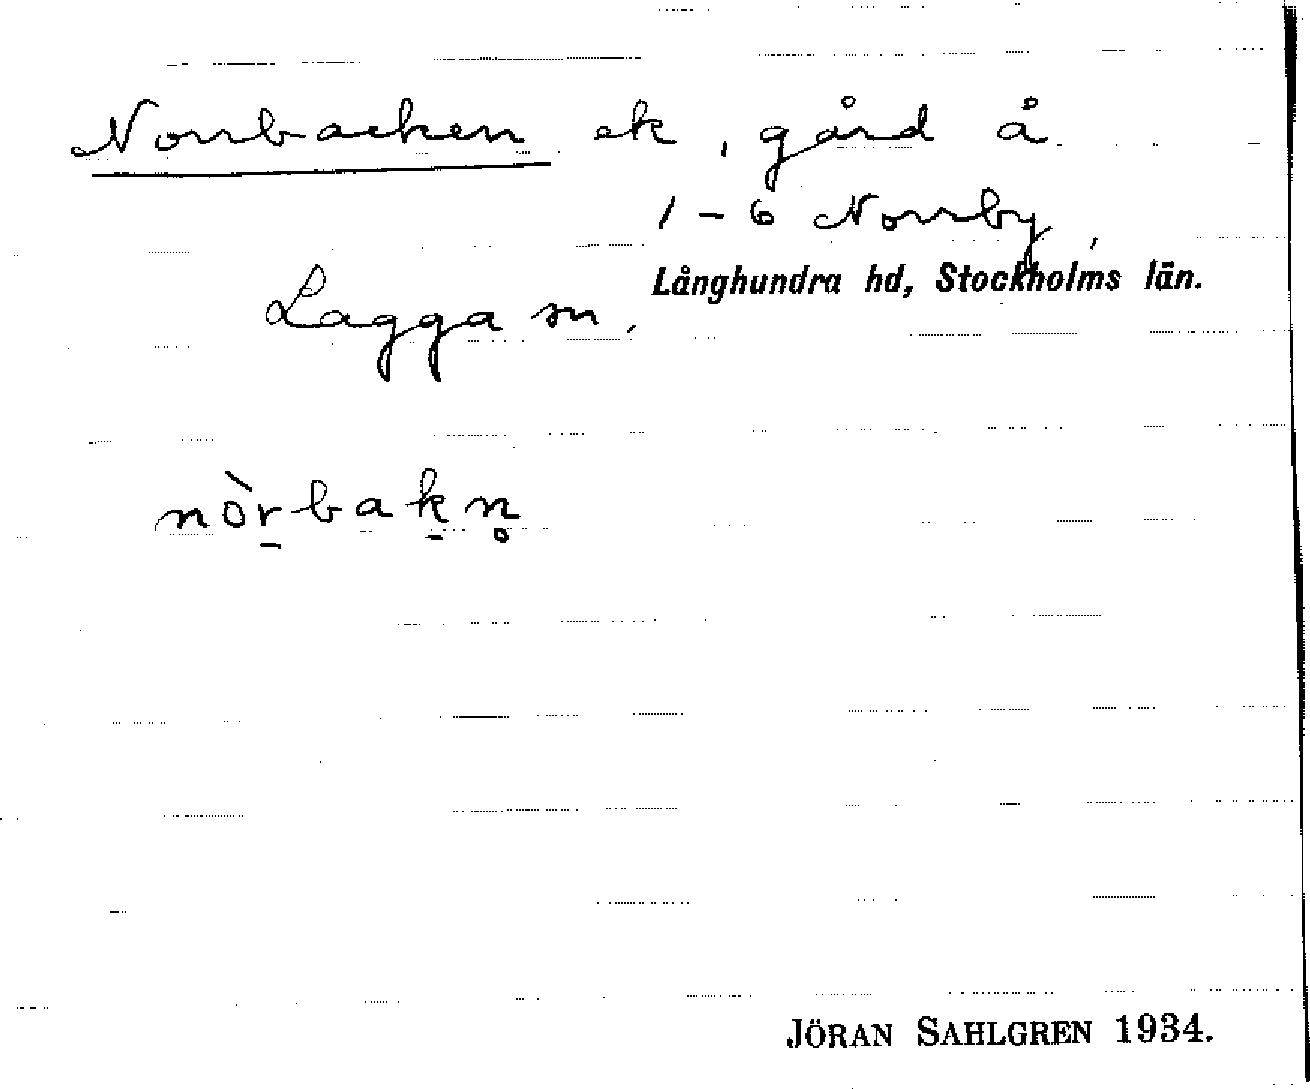 Norrbacken ek, gård å
1-6 Norrby,
Långhundra hd, Stockholms län.
Lagga sn,
nòr̠bak̠n̥
JÖRAN SAHLGREN 1934.